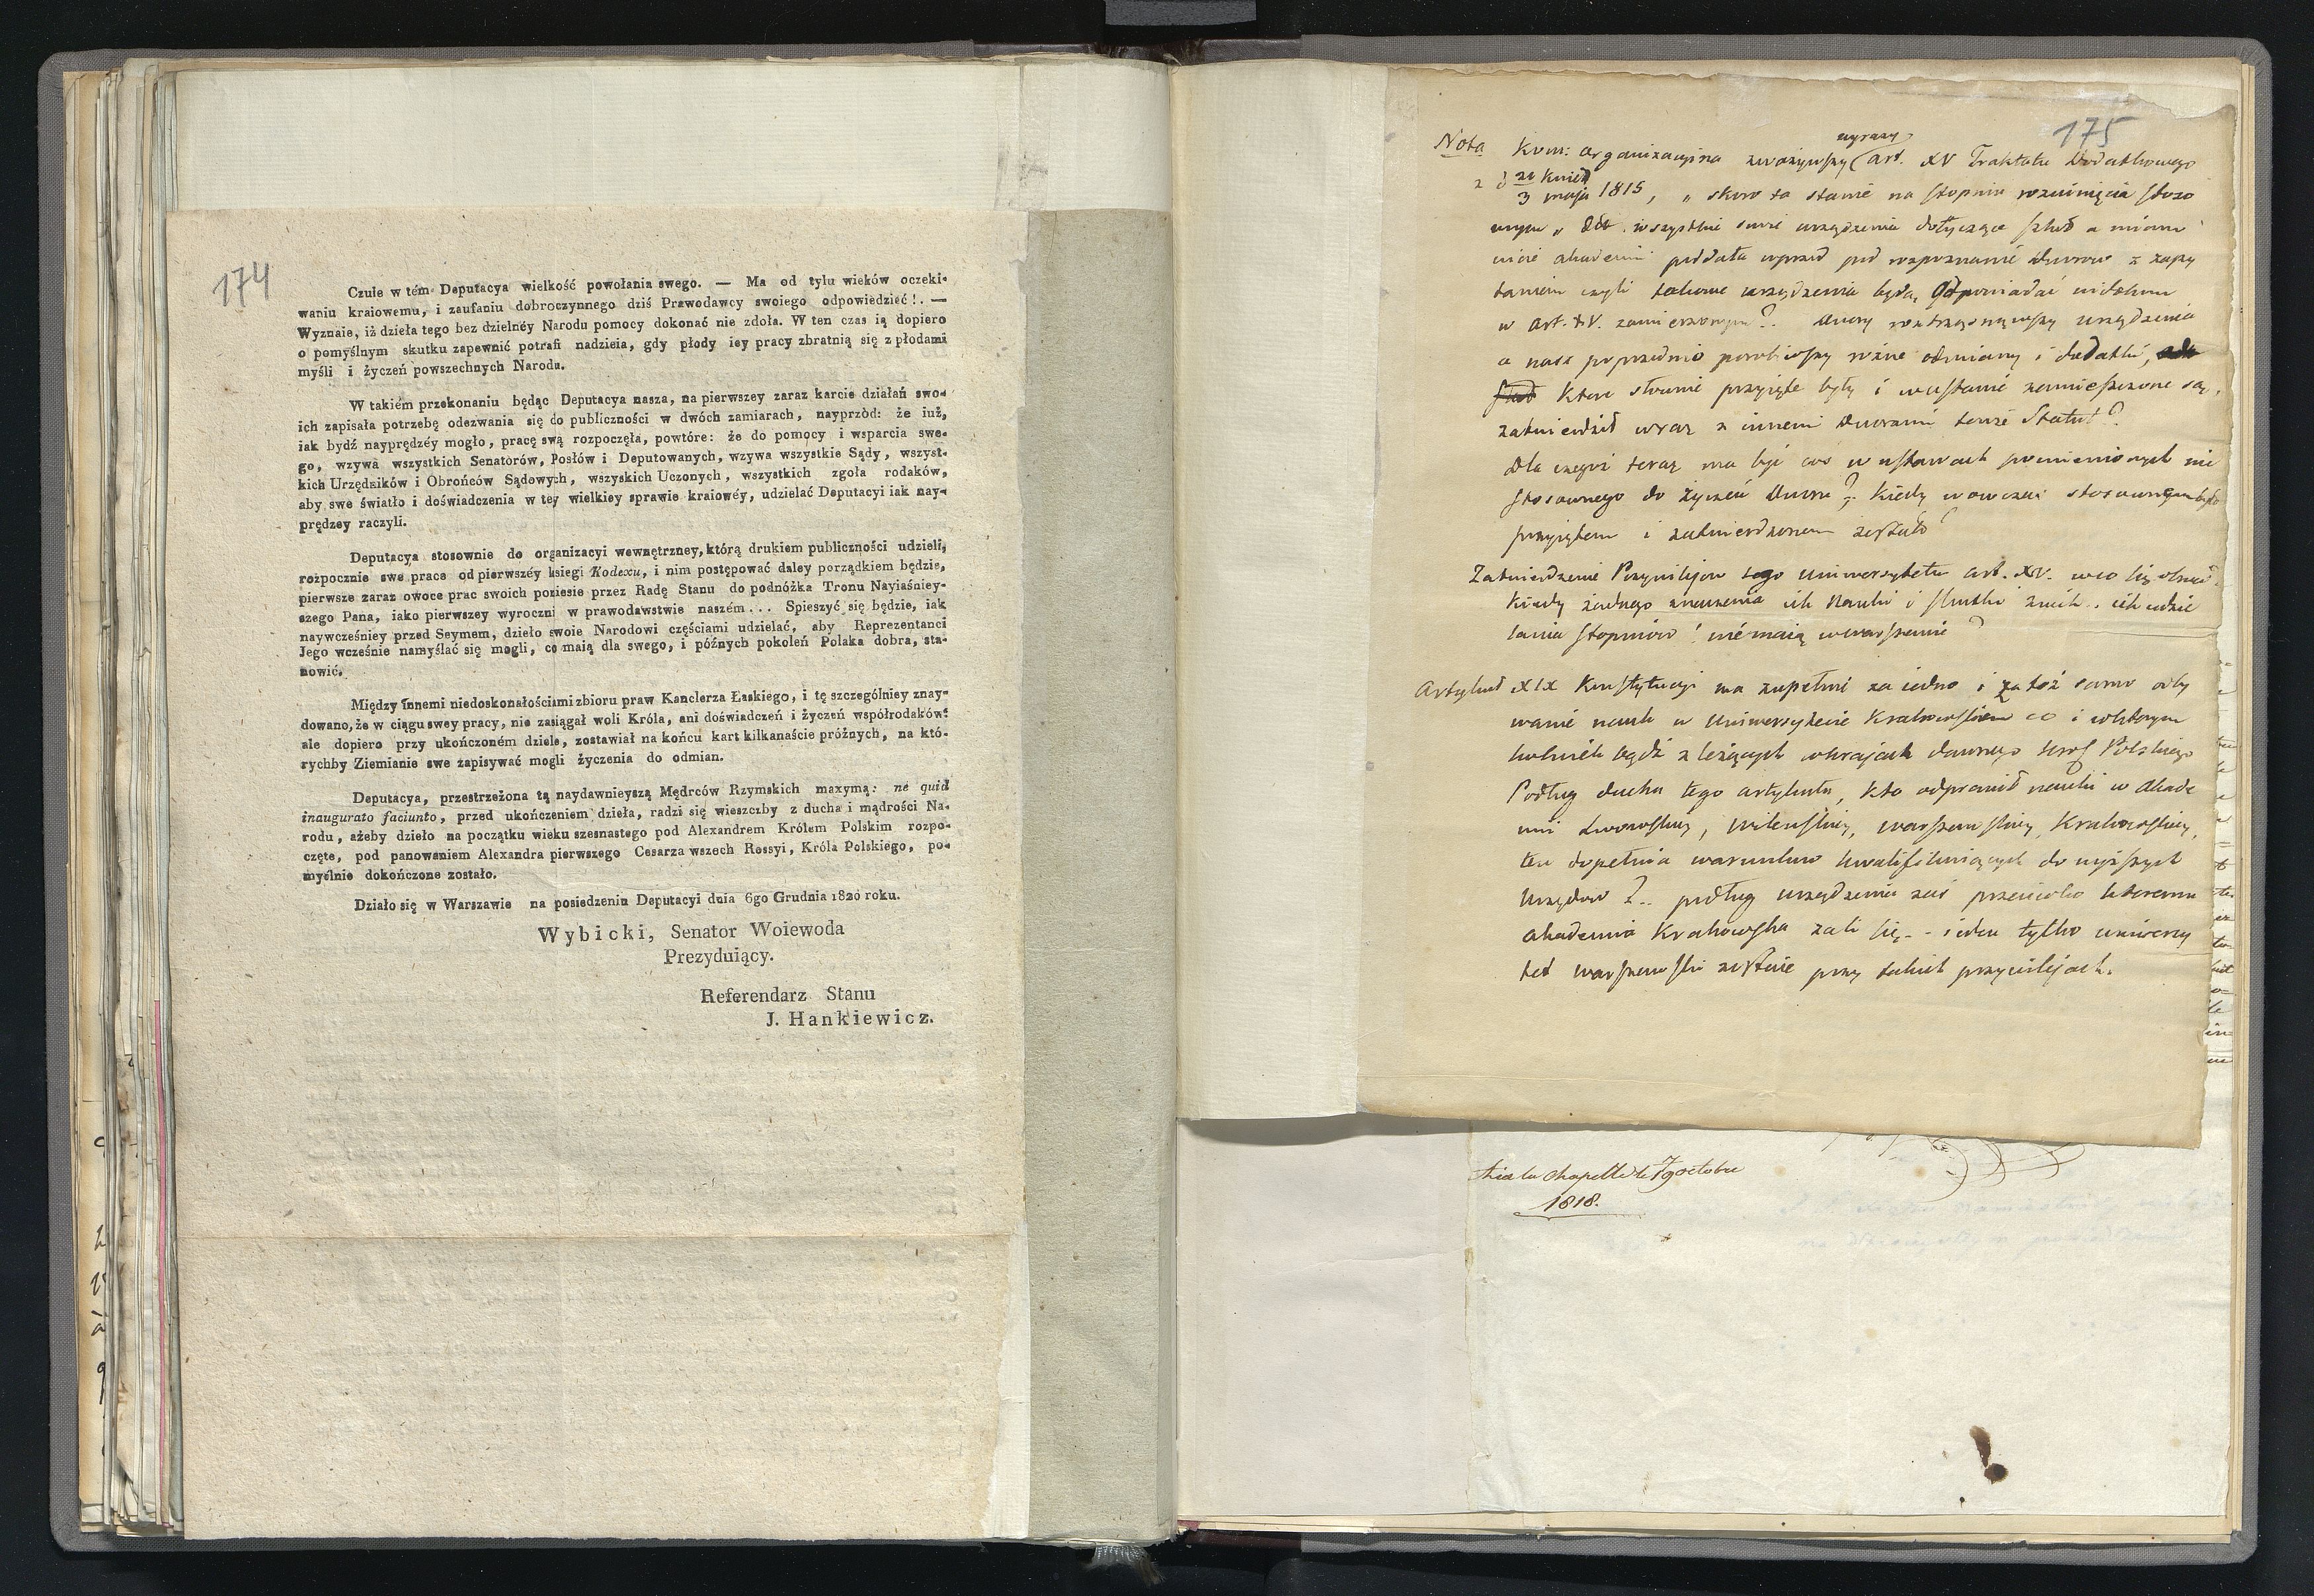 174
Czuie w tém Deputacya wielkość powołania swego. — Ma od tylu wieków oczeki-
waniu kraiowemu, i zaufaniu dobroczynnego dziś Prawodawcy swoiego odpowiedzieć!. —
Wyznaie, iż dzieła tego bez dzielnéy Narodu pomocy dokonać nie zdoła. W ten czas ią dopiero
o pomyślnym skutku zapewnić potrafi nadzieia, gdy płody iey pracy zbratnią się z płodami
myśli i życzeń powszechnych Narodu.
W takiém przekonaniu będąc Deputacya nasza, na pierwszey zaraz karcie działań swo-
ich zapisała potrzebę odezwania się do publiczności w dwóch zamiarach, nayprzòd: że iuż,
iak bydź nayprędzéy mogło, pracę swą rozpoczęła, powtóre: że do pomocy i wsparcia swe-
go, wzywa wszystkich Senatorów, Posłów i Deputowanych, wzywa wszystkie Sądy, wszyst-
kich Urzędników i Obrońców Sądowych, wszyskich Uczonych, wszystkich zgoła rodaków,
aby swe światło i doświadczenia w tey wielkiey sprawie kraiowéy, udzielać Deputacyi iak nay-
prędzey raczyli.
Deputacya stosownie do organizacyi wewnętrzney, którą drukiem publiczności udzieli,
rozpocznie swe prace od pierwszéy księgi Kodexu, i nim postępować daley porządkiem będzie,
pierwsze zaraz owoce prac swoich poniesie przez Radę Stanu do podnóżka Tronu Nayiaśniey-
szego Pana, iako pierwszey wyroczni w prawodawstwie naszém... Spieszyć się będzie, iak
naywcześniey przed Seymem, dzieło swoie Narodowi częściami udzielać, aby Reprezentanci
Jego wcześnie namyślać się mogli, co maią dla swego, i późnych pokoleń Polaka dobra, sta-
nowić.
Między innemi niedoskonałościami zbioru praw Kanclerza Łaskiego, i tę szczególniey znay-
dowano, że w ciągu swey pracy, nie zasiągał woli Króla, ani doświadczeń i życzeń współrodaków:
ale dopiero przy ukończoném dziele, zostawiał na końcu kart kilkanaście próżnych, na któ-
rychby Ziemianie swe zapisywać mogli życzenia do odmian.
Deputacya, przestrzeżona tą naydawnieyszą Mędrców Rzymskich maxymą: ne quid
inaugurato faciunto, przed ukończeniem dzieła, radzi się wieszczby z ducha i mądrości Na-
rodu, ażeby dzieło na początku wieku szesnastego pod Alexandrem Królem Polskim rozpo-
częte, pod panowaniem Alexandra pierwszego Cesarza wszech Rossyi, Króla Polskiego, po-
myślnie dokończone zostało.
Działo się w Warszawie na posiedzeniu Deputacyi dnia 6go Grudnia 1820 roku.
Wybicki, Senator Woiewoda
Prezyduiący.
Referendarz Stanu
J. Hankiewicz.
175
wyrazy
Nota Kom: organizacyina zważywszy art. XV Traktatu Dodatkowego
z d 21 Kwiet
3 maja 1815, „ skoro ta stanie na stopniu rozwinięcia stoso
wnym „ wszystkie swoie urządzenia dotyczące szkół a miano
wicie akademii poddała wprzód pod rozpoznanie dworów z zapy
taniem czyli takowe urządzenia będą odpowiadać widokom
w art. XV. zamierzonym?. Dwory roztrząsnąwszy urządzenia
a nasz poprzednio porobiwszy różne odmiany i dodatki,
które słownie przyjęte były i w ustawie zamieszczone są,
zatwierdził wraz z innemi dworami tenże Statut?
Dla czegoż teraz ma być co w ustawach pomienionych nie
stosownego do życzeń Dworu? kiedy wówczas stosownem było
przyjętem i zatwierdzonem zostało?
Zatwierdzenie Przywilejów tego Uniwersytetu art. XV. w co się obraca
kiedy żadnego znaczenia ich nauki i skutki z nich.. ich udzie
lania stopniów! nie maią w Warszawie?
Artykuł XIX Konstytucyi ma zupełnie za iedno i za toż samo odby
wanie nauk w Uniwersytecie Krakowskiem co i w którym
kolwiek bądź z leżących w krajach dawnego Polskiego
Podług ducha tego artykułu, kto odprawił nauki w Akade
mii Lwowskiey, Wileńskiey, Warszawskiey, Krakowskiey,
ten dopełnia warunków kwalifikuiących do wyższych
Urzędów?.. podług urządzenia zaś przeciwko któremu
akademia Krakowska żali się - - ieden tylko uniwersy
tet warszawski zostaie przy takich przywilejach.
Aix la Chapelle le 7 octobre
1818.